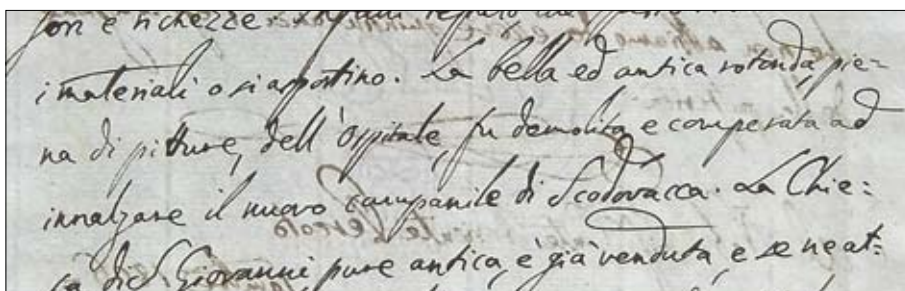 e richezze.
i materiali o si asportino. La bella ed antica rotonda, pie=
na di pitture, dell'Ospitale, fu demolita, e comperata ad
innalzare il nuovo campanile di Scodovacca. La Chie=
sa di S. Giovanni, pure antica, è già venduta, e se ne at=